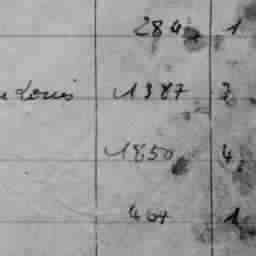 284 1
Louis 1387 2
1850 4
467 1